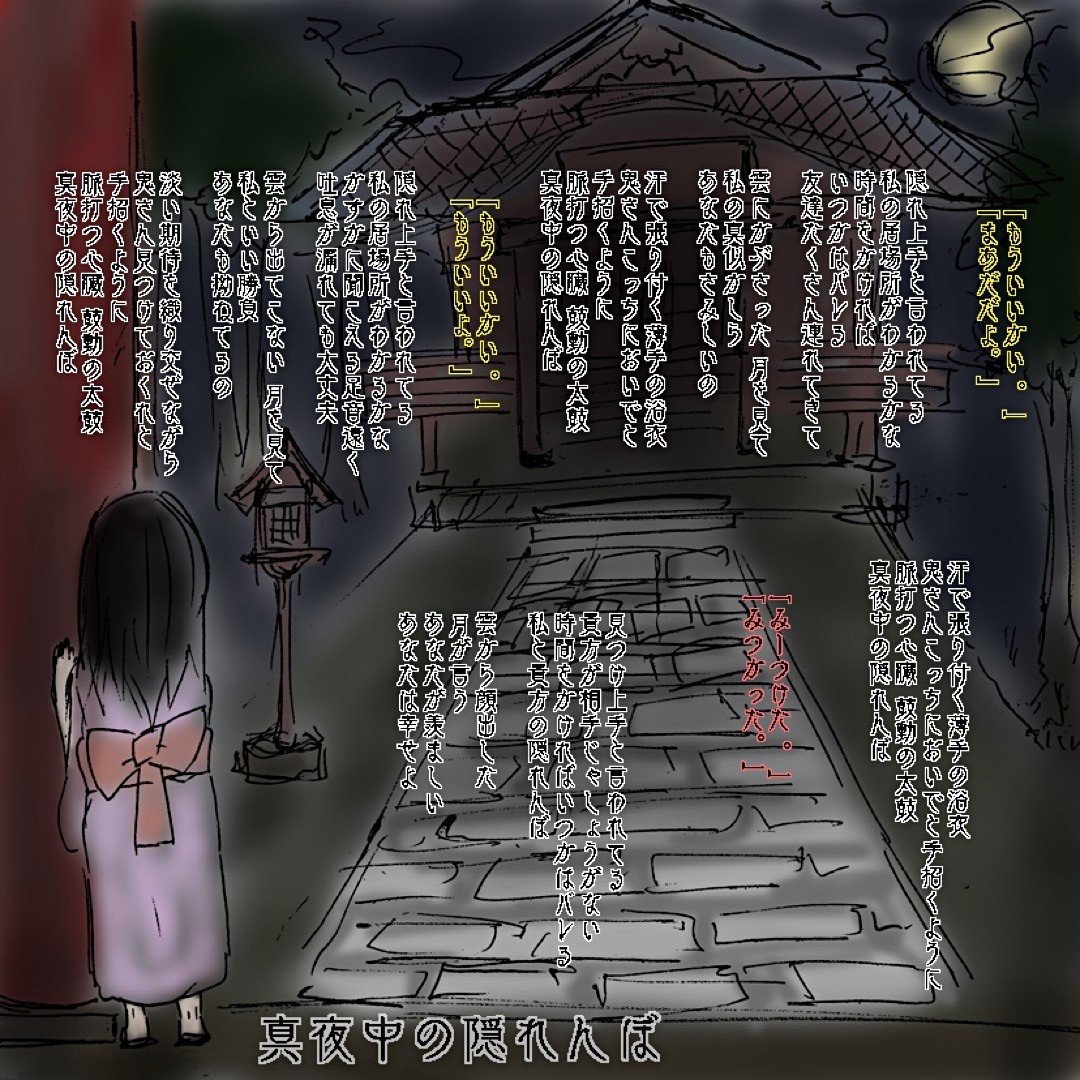 「もういいかい。」
「まあだだよ。」
隠れ上手と言われてる
私の居場所がわかるかな
時間をかければ
いつかはバレる
友達たくさん連れてきて
雲にかじさった 月を見て
私の真似かしら
あなたもさみしいの
汗で張り付く薄手の浴衣
鬼さんこっちにおいでと
手招くように
脈打つ心臓 鼓動の太鼓
真夜中の隠れんぼ
「もういいかい。」
「もういいよ。」
隠れ上手と言われてる
私の居場所がわかるかな
かすかに聞こえる足音遠く
吐息が漏れても大丈夫
雲から出てこない 月を見て
私といい勝負
あなたも拗ねてるの
淡い期待を織り交ぜながら
鬼さん見つけておくれと
手招くように
脈打つ心臓 鼓動の太鼓
真夜中の隠れんぼ
汗で張り付く薄手の浴衣
鬼さんこっちにおいでと手招くように
脈打つ心臓 鼓動の太鼓
真夜中の隠れんぼ
「みーつけた。」
「みつかった。」
見つけ上手と言われてる
貴方が相手じゃしょうがない
時間をかければいつかはバレる
私と貴方の隠れんぼ
雲から顔出した
月が言う
あなたが羨ましい
あなたは幸せよ
真夜中の隠れんぼ